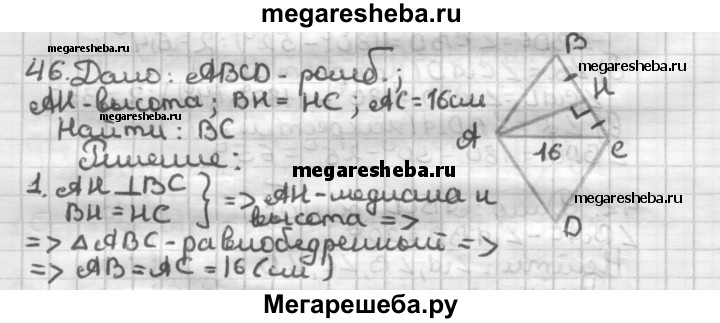 megaresheba.ru
megaresheba.ru
46. Дано: ABCD - ромб.;
megaresheba.ru
AH - высота; BH = HC; AC = 16 см
Найти: BC
Решение:
1. AH ⊥ BC
BH = HC
} => AH - медиана и
высота =>
=> △ ABC - равнобедренный =>
=> AB = AC = 16 (см)
B
H
A
16
C
D
megaresheba.ru
megaresheba.ru
megaresheba.ru
Мегарешеба.ру